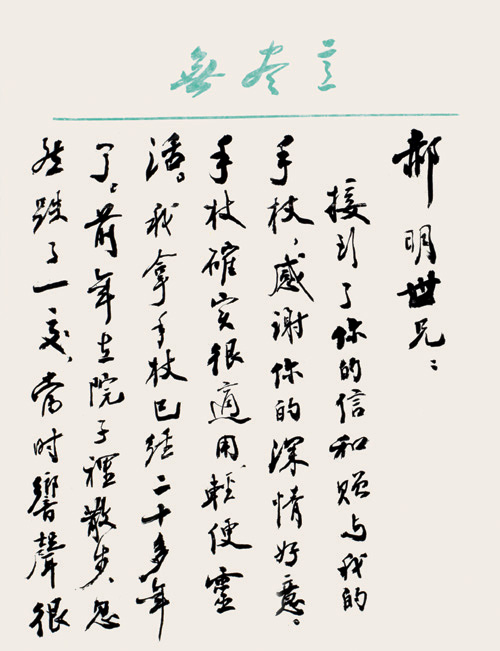 無尽意
郝明世兄：
接到了你的信和贈与我的
手杖，感謝你的深情好意。
手杖確实很適用，輕便靈
活。我拿手杖已经二十多年
了。前年在院子裡散步，忽
然跌了一交，當时響聲很